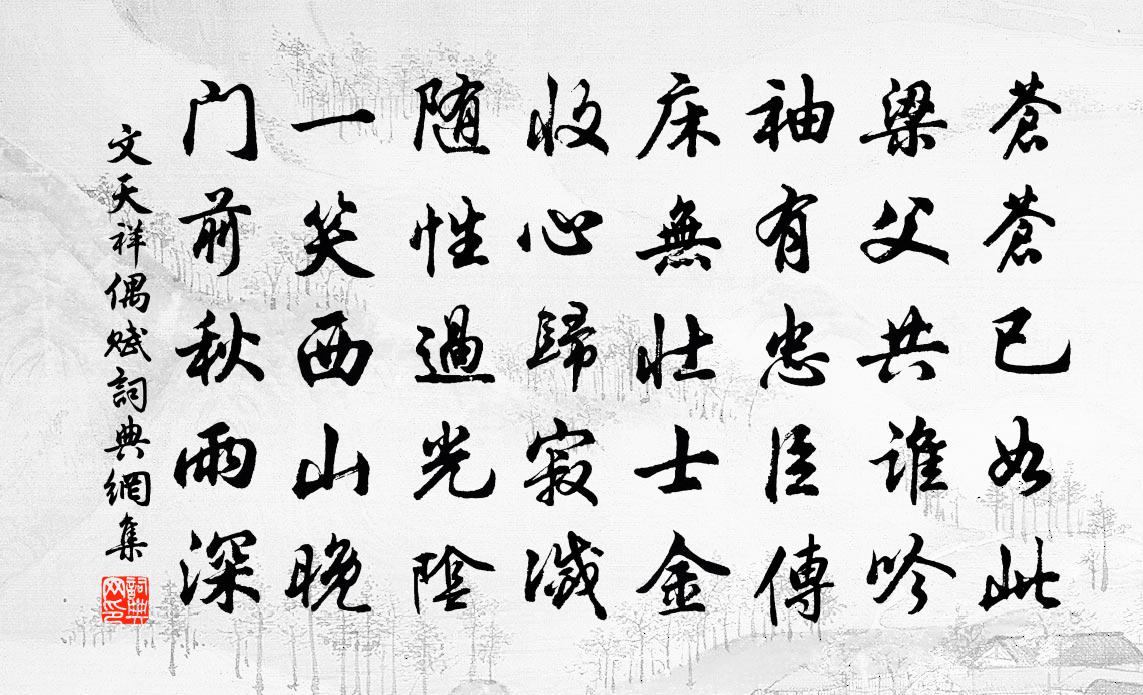 蒼蒼已如此
梁父共誰吟
袖有忠臣傳
床無壯士金
收心歸寂滅
随性過光陰
一笑西山晚
门前秋雨深
文天祥偶賦詞典網集
詞典网印